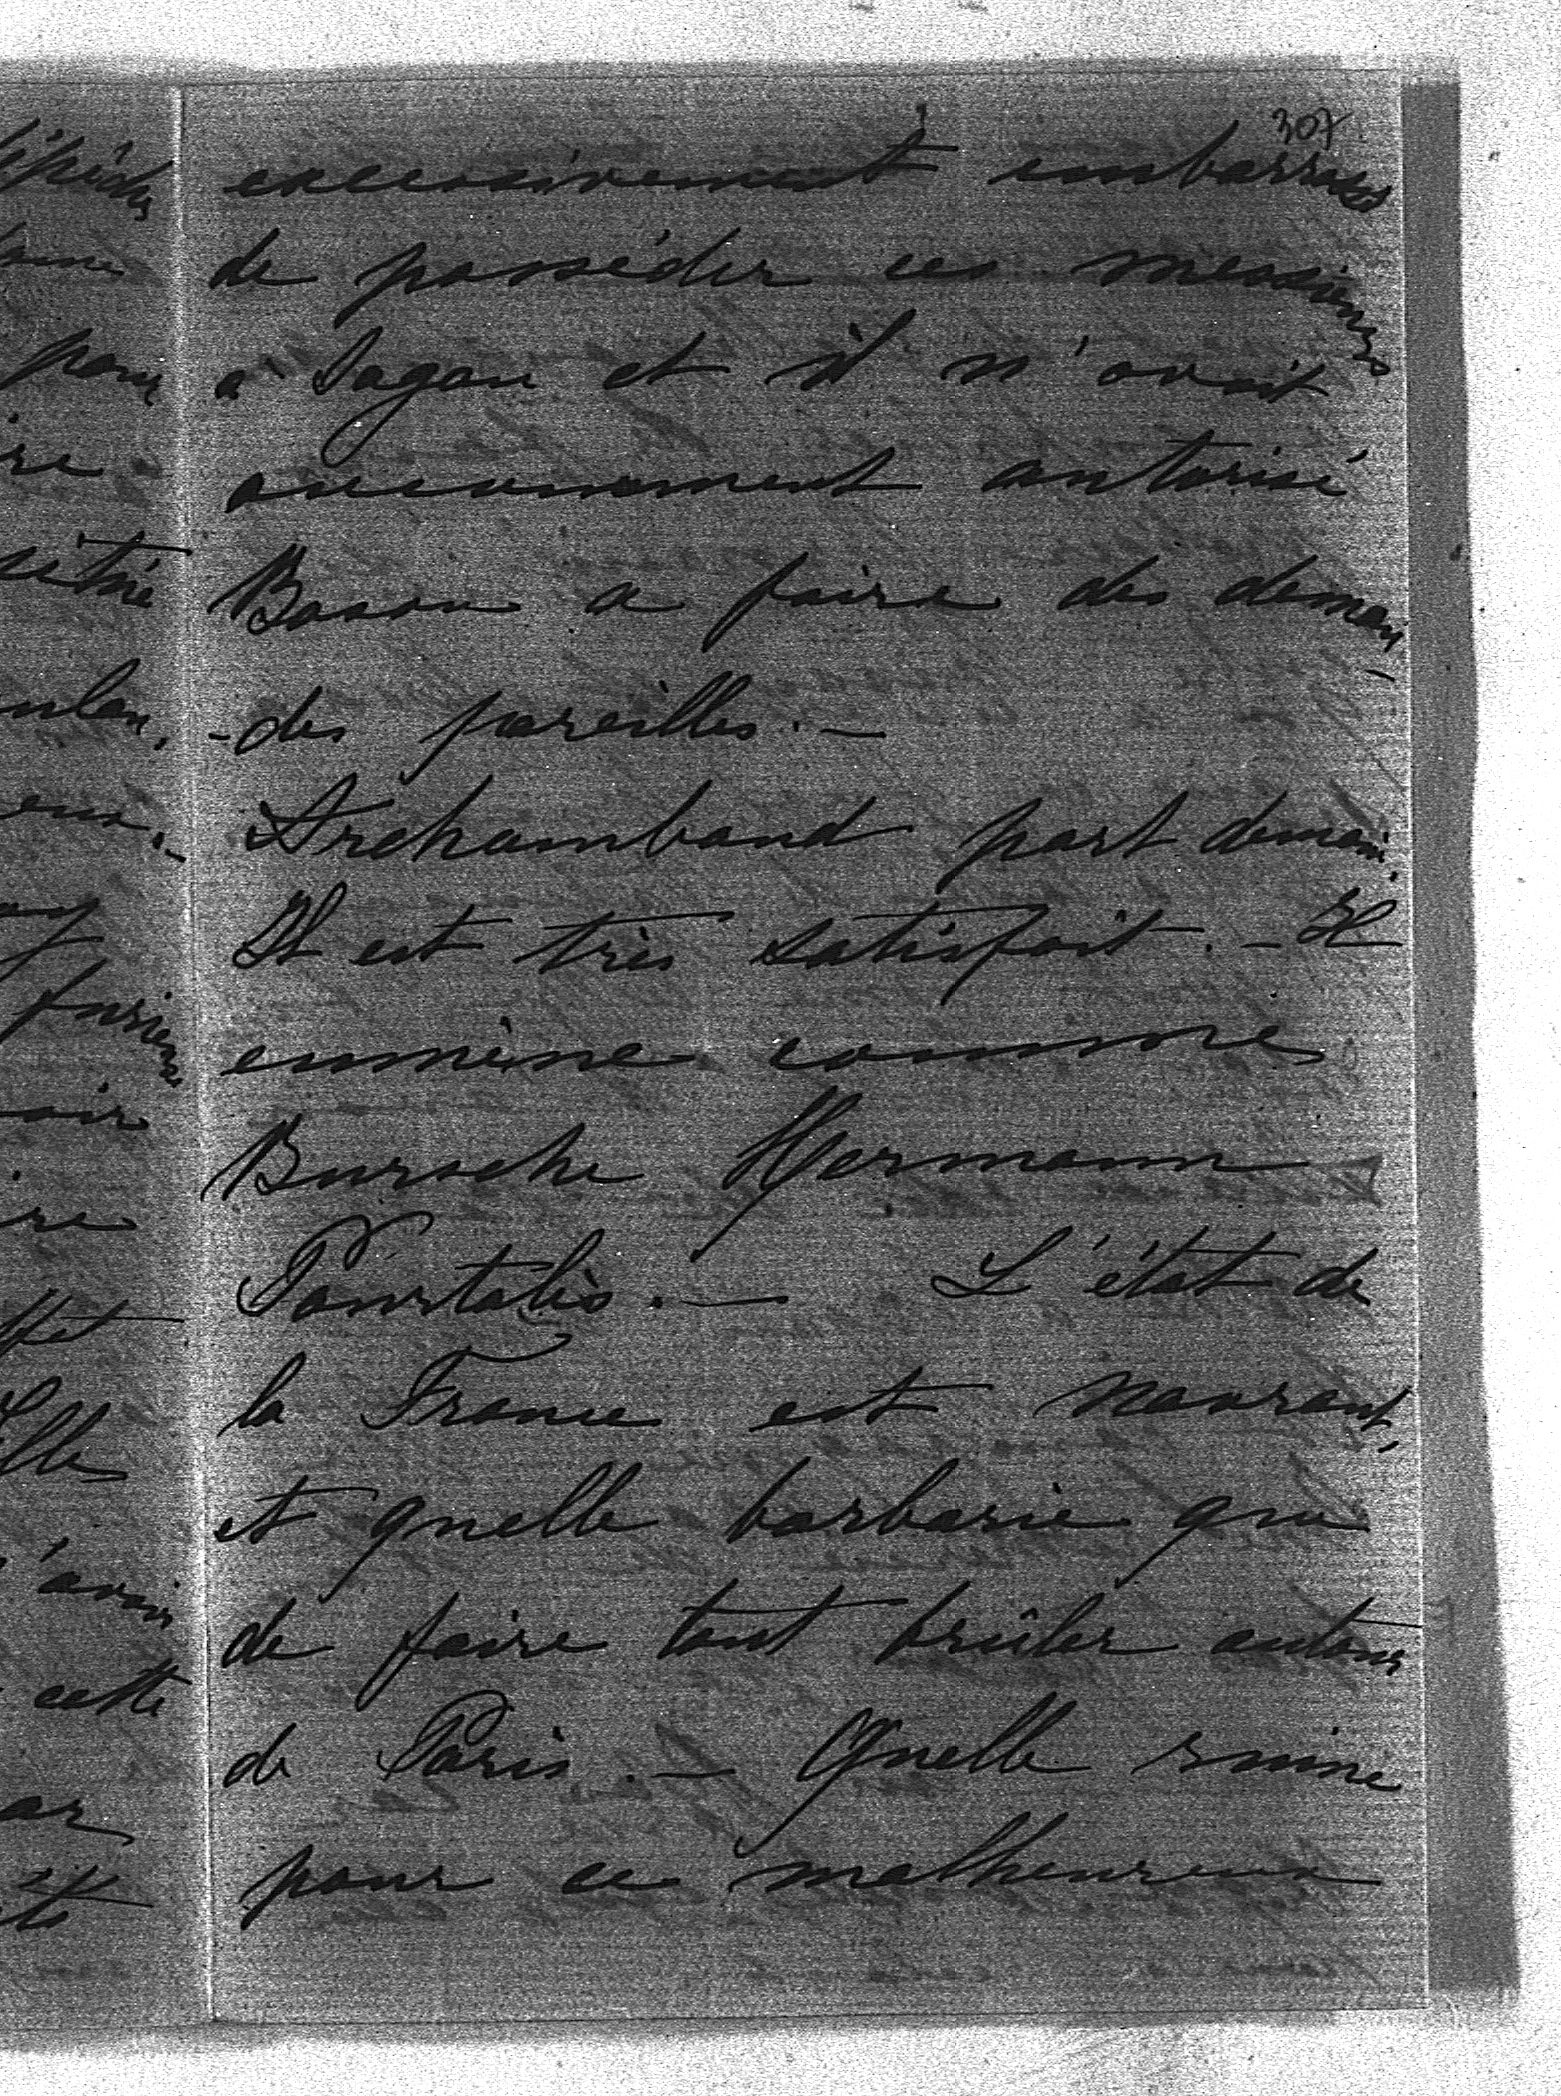 307
excessivement embarrassé
de posséder ces messieurs
à Sagan et il n'avait
aucunement autorisé
Boson a faire des deman
-des pareilles. —
Archambaud part demain.
Il est très satisfait. — Il
emmène comme
Bursche Hermann
Pourtalès. — L'état de
la France est navrant,
et quelle barbarie que
de faire tout brûler autour
de Paris. — Quelle ruine
pour ce malheureux
pour
ire
furieux
oir
ire
Elle
cette